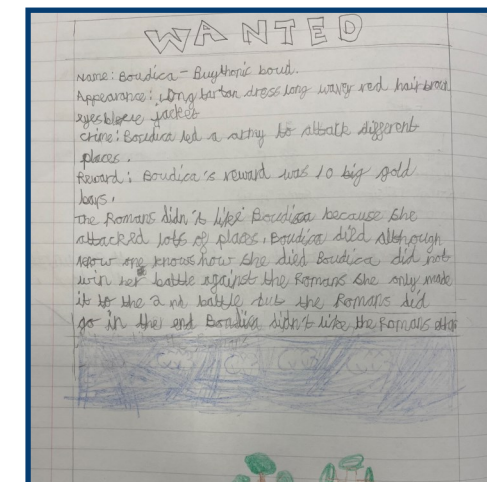 WANTED
Name: Boudica - Buythonic boud.
Appearance: long tartan dress long wavey red hair brown
eyes blowe jacket
crime: Boudica led a army to attack different
places.
Reward: Boudica's reward was 10 big gold
bays.
the Romans didn't like Boudica because she
attacked lots of places. Boudica died although
now one knows how she died Boudica did not
win her battle against the Romans she only made
it to the 2nd battle but the Romans did
go in the end Boudica didn't like the Romans